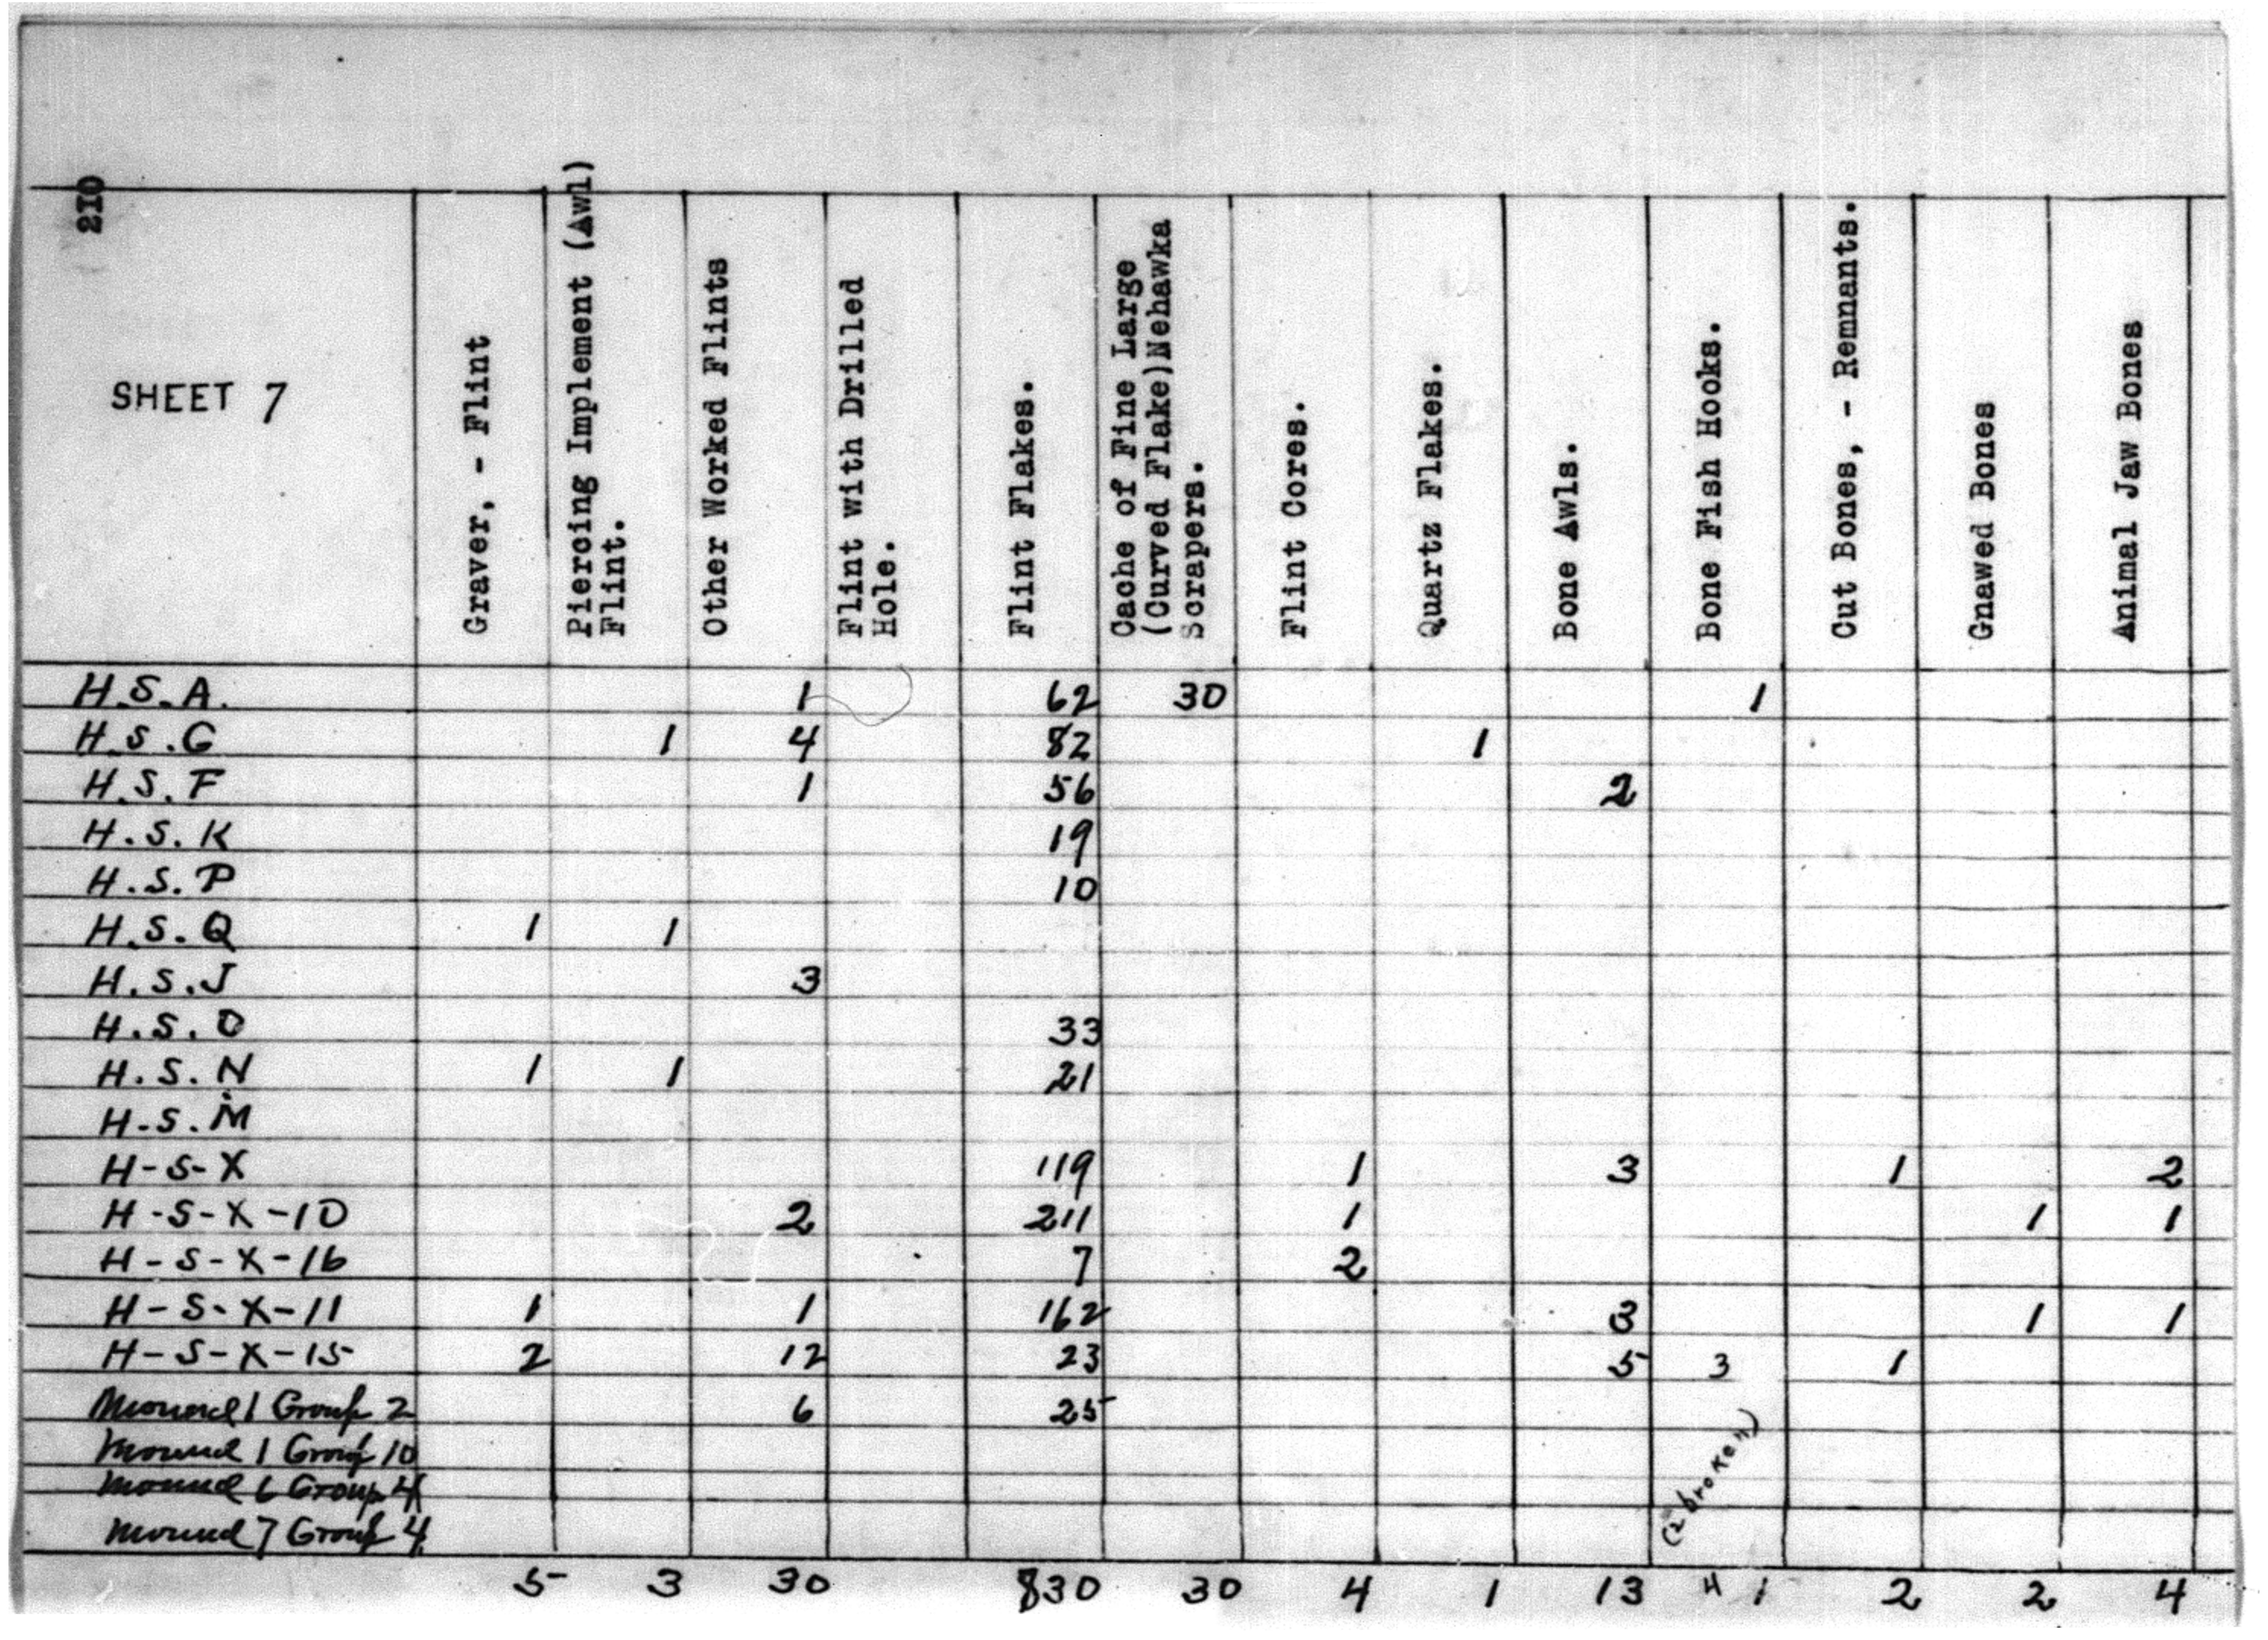 210
SHEET 7
Graver, - Flint
Piercing Implement (Awl)
Flint.
Other Worked Flints
Flint with Drilled
Hole.
Flint Flakes.
Cache of Fine Large
(Curved Flake)Nehawka
Scrapers.
Flint Cores.
Quartz Flakes.
Bone Awls.
Bone Fish Hooks.
Cut Bones, - Remnants.
Gnawed Bones
Animal Jaw Bones
H.S.A. 1 62 30 1
H.S.G 1 4 82 1
H.S.F 1 56 2
H.S.K 19
H.S.P 10
H.S.Q 1 1
H.S.J 3
H.S.O 33
H.S.N 1 1 21
H-S.M
H-S-X 119 1 3 1 2
H-S-X-10 2 211 1 1 1
H-S-X-16 7 2
H-S-X-11 1 1 162 3 1 1
H-S-X-15 2 12 23 5 3 1
Mound 1 Group 2 6 25
Mound 1 Group 10
Mound 6 Group 4
Mound 7 Group 4
(2 broken)
5 3 30 830 30 4 1 13 4 1 2 2 4